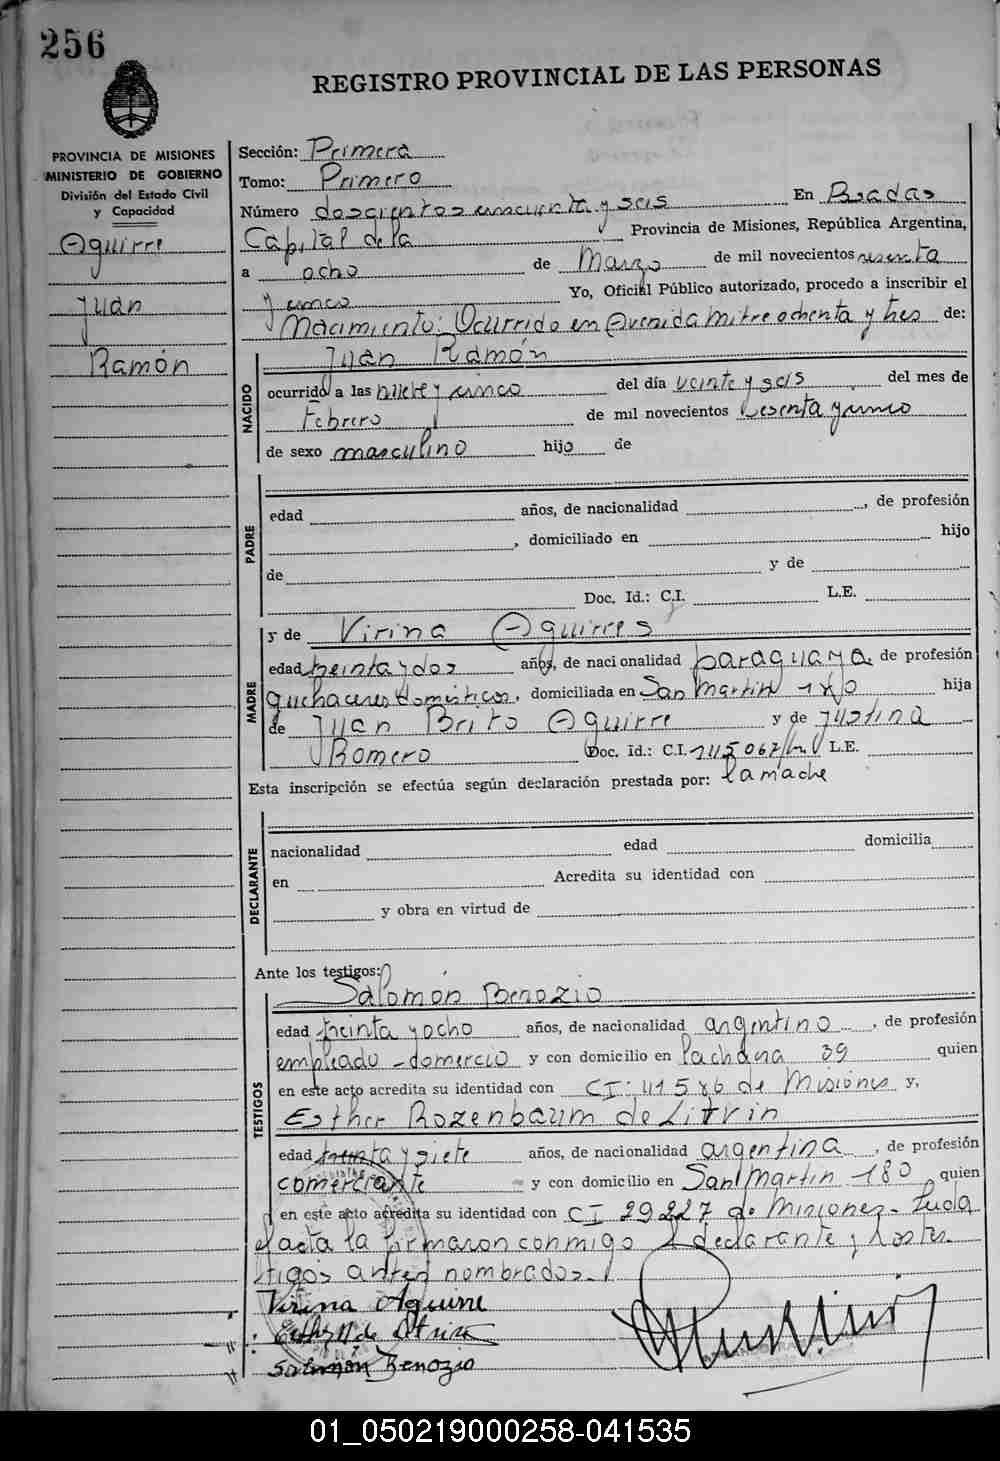 256
REGISTRO PROVINCIAL DE LAS PERSONAS
PROVINCIA DE MISIONES
MINISTERIO DE GOBIERNO
División del Estado Civil
y Capacidad
Aguirre
Juan
Ramón
Sección: Primera
Tomo: Primero
Número doscientos cincuenta y seis En Posadas
Capital de la Provincia de Misiones, República Argentina,
a ocho de Marzo de mil novecientos sesenta
y cinco Yo, Oficial Público autorizado, procedo a inscribir el
Nacimiento: Ocurrido en Avenida Mitre ochenta y tres de:
NACIDO
Juan Ramón
ocurrido a las nueve y cinco del día veinte y seis del mes de
Febrero de mil novecientos sesenta y cinco
de sexo masculino hijo de
PADRE
edad años, de nacionalidad , de profesión
, domiciliado en hijo
de y de
Doc. Id.: C.I. L.E.
MADRE
y de Virina Aguirres
edad treinta y dos años, de nacionalidad paraguaya, de profesión
quehaceres domésticos, domiciliada en San Martín 180 hija
de Juan Brito Aguirre y de Justina
Romero Doc. Id.: C.I. 145067 L.E.
Esta inscripción se efectúa según declaración prestada por: la madre
DECLARANTE
nacionalidad edad domicilia
en Acredita su identidad con
y obra en virtud de
Ante los testigos:
TESTIGOS
Salomón Benozio
edad treinta y ocho años, de nacionalidad argentino, de profesión
empleado - comercio y con domicilio en 39 quien
en este acto acredita su identidad con CI: 41586 de Misiones y,
Esther Rozenbaum de Litvin
edad treinta y siete años, de nacionalidad argentina, de profesión
comerciante y con domicilio en San Martín 180 quien
en este acto acredita su identidad con CI 29227 de Misiones - Leida
el acta la firmaron conmigo declarante y los tes-
tigos antes nombrados.
Virina Aguirre
Salomón Benozio
01_050219000258-041535